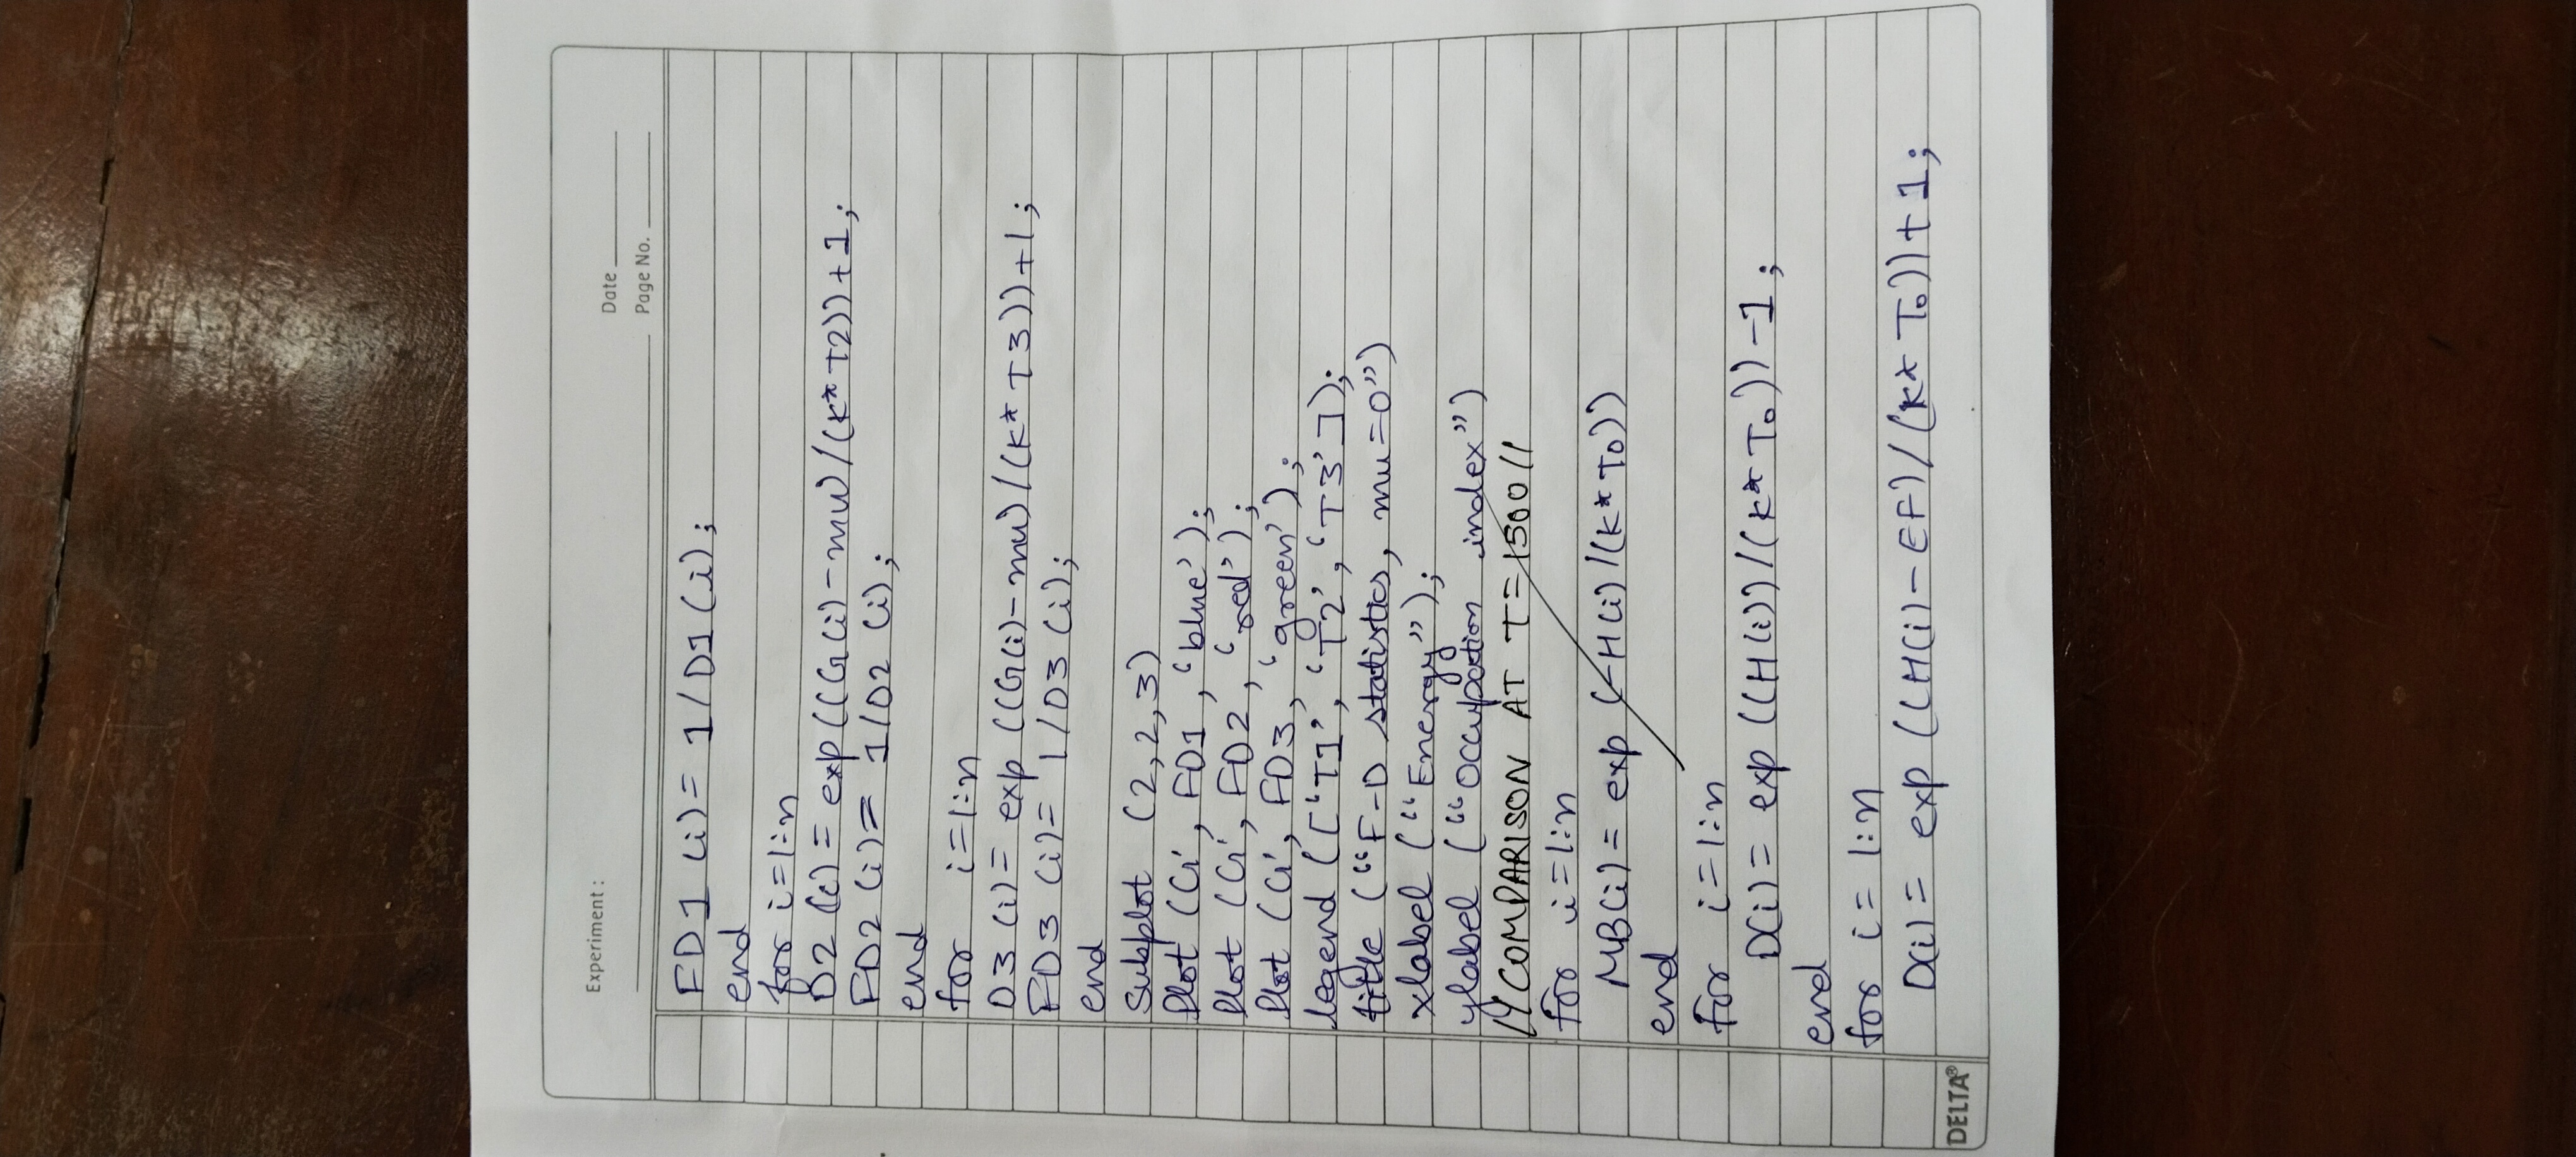 Experiment :
Date
Page No.
FD1 (i) = 1/D1 (i);
end
for i=1:n
D2 (i) = exp((G(i)-mu)/(K*T2))+1;
FD2 (i) = 1/D2 (i);
end
for i=1:n
D3 (i) = exp ((G(i)-mu)/(K*T3))+1;
FD3 (i) = 1/D3 (i);
end
subplot (2,2,3)
Plot (G', FD1, 'blue');
Plot (G', FD2, 'red');
Plot (G', FD3, 'green');
legend (['T1', 'T2', 'T3']);
title ("F-D statistics, mu=0")
xlabel ("Energy");
ylabel ("Occupation index")
// COMPARISON AT T=1500 //
for i=1:n
MB(i) = exp (-H(i)/(K*T0))
end
for i=1:n
D(i) = exp ((H(i))/(K*T0))-1;
end
for i= 1:n
D(i) = exp ((H(i)-EF)/(K*T0))+1;
DELTA®